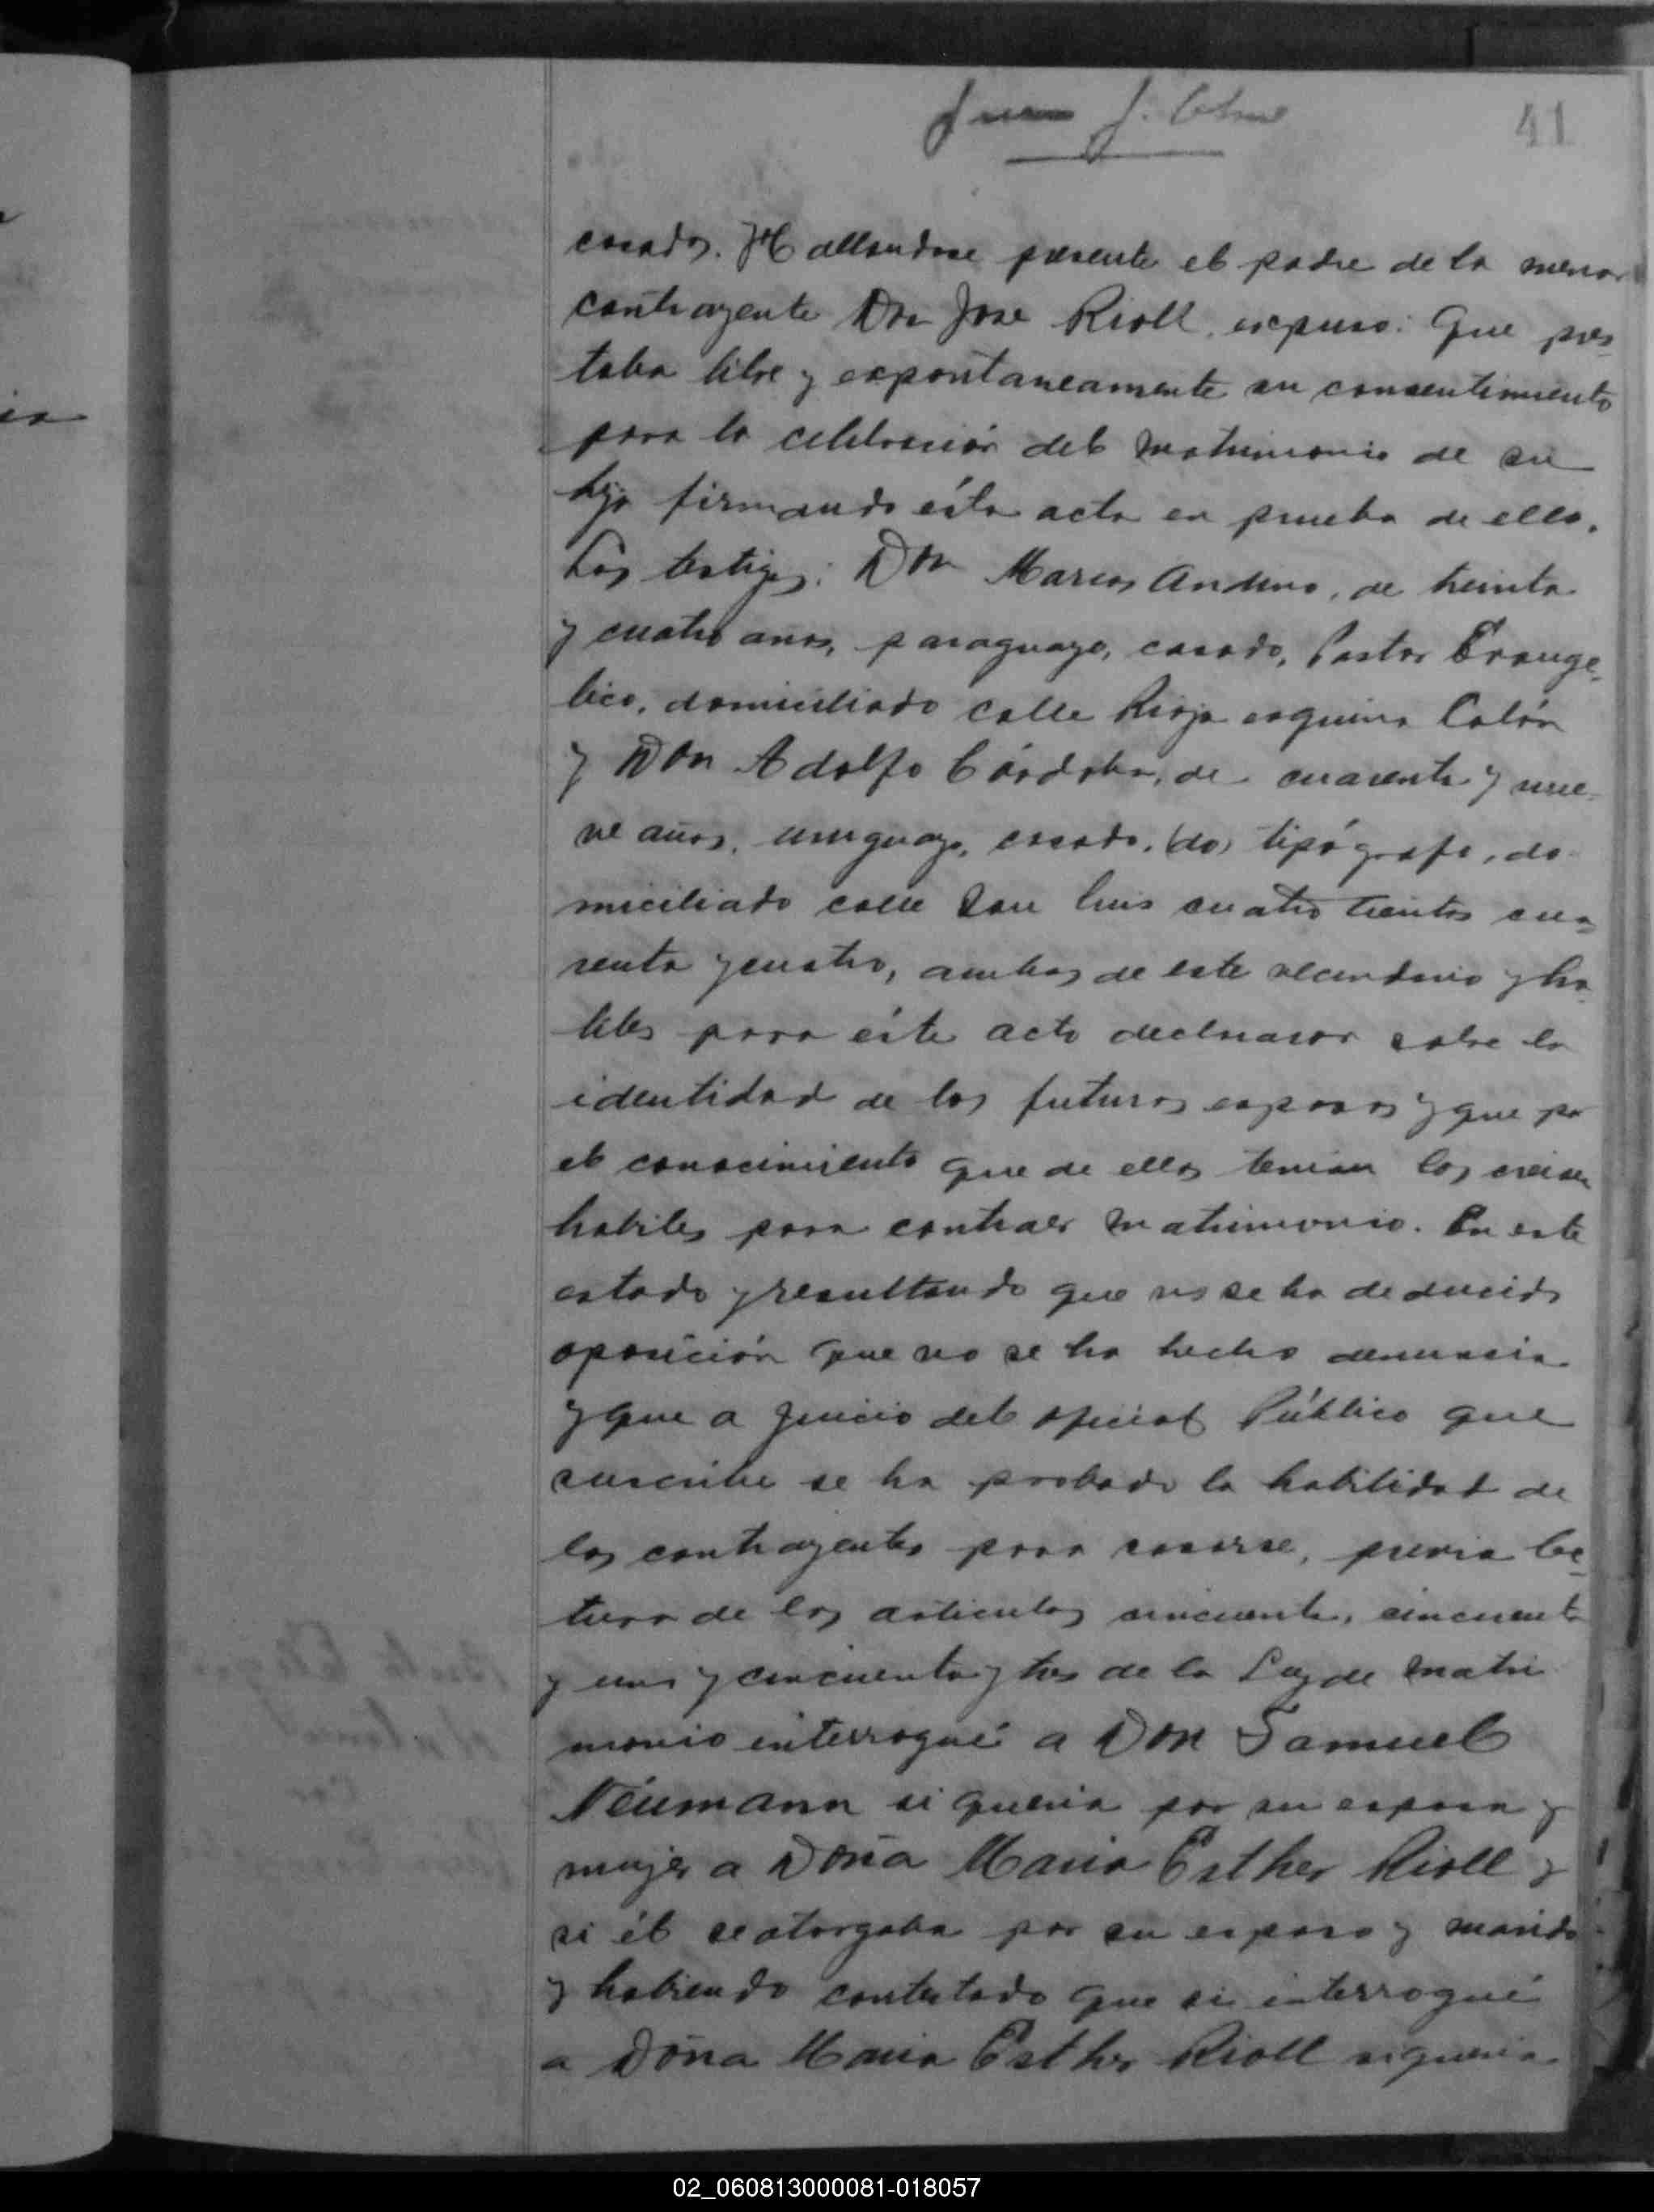 41
casados. Hallandose presente el padre de la menor
contrayente Don Jose Rioll, expuso: Que pres-
taba libre y espontaneamente su consentimiento
para la celebración del matrimonio de su
hija firmando ésta acta en prueba de ello.
Los testigos: Don Marcos Andino, de treinta
y cuatro anos, paraguayo, casado, Pastor Evange-
lico, domiciliado calle Rioja esquina Colón
y Don Adolfo Córdoba, de cuarenta y nue-
ve años, uruguayo, casado, (do) tipógrafo, do-
miciliado calle San Luis cuatro cientos cua-
renta y cuatro, ambos de este vecindario y ha-
biles para éste acto declararon sobre la
identidad de los futuros esposos y que por
el conocimiento que de ellos tenian los creian
habiles para contraer matrimonio. En este
estado y resultando que no se ha deducido
oposición que no se ha hecho denuncia
y que a juicio del oficial Público que
suscribe se ha probado la habilidad de
los contrayentes para casarse, previa lec-
tura de los articulos cincuenta, cincuenta
y uno y cincuenta y tres de la Ley de matri
monio interrogué a Don Samuel
Néumann si queria por su esposa y
mujer a Doña Maria Esther Rioll y
si él se otorgaba por su esposo y marido
y habiendo contestado que si interrogué
a Doña Maria Esther Rioll si queria
02_060813000081-018057